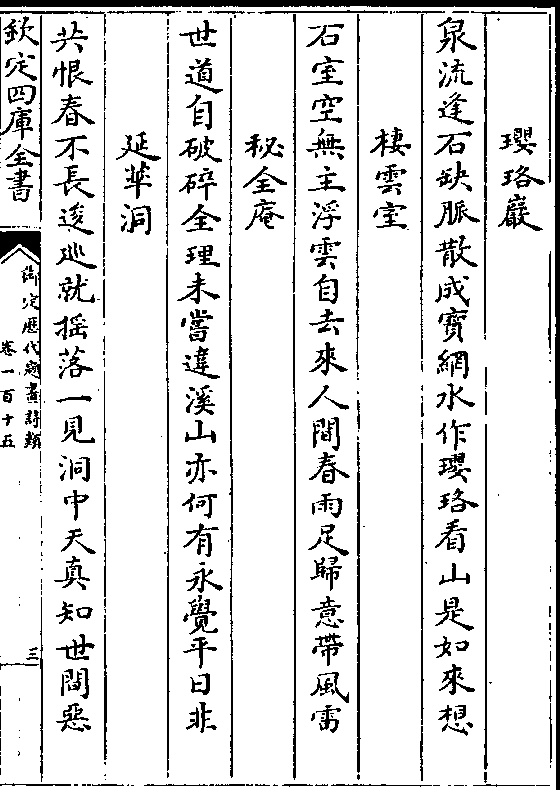 瓔珞巖
泉流逢石缺脈散成寶網水作瓔珞看山是如來想
棲雲室
石室空無主浮雲自去來人間春雨足歸意帶風雷
秘全庵
世道自破碎全理未嘗違溪山亦何有永覺平日非
延華洞
共恨春不長逡巡就搖落一見洞中天真知世間惡
欽定四庫全書
御定歷代題畫詩類
卷一百十五
三